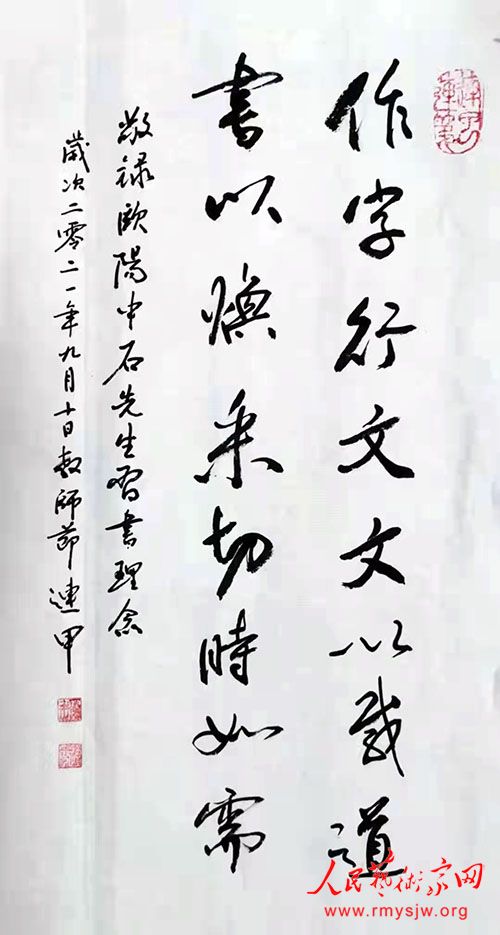 作字行文文以载道
书以焕采切时如需
敬禄欧阳中石先生习书理念
岁次二零二一年九月十日教师节连甲
人民艺术家网
www.rmysjw.org